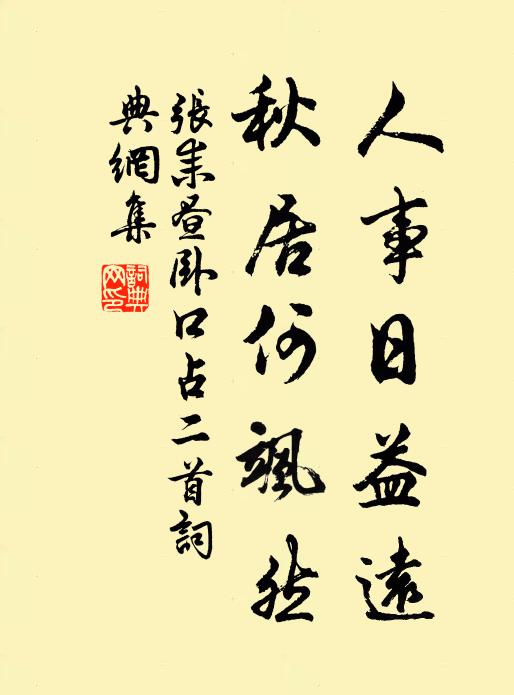 人事日益遠
秋居何颯然
張耒晝臥口占二首詞
典網集
詞典網印